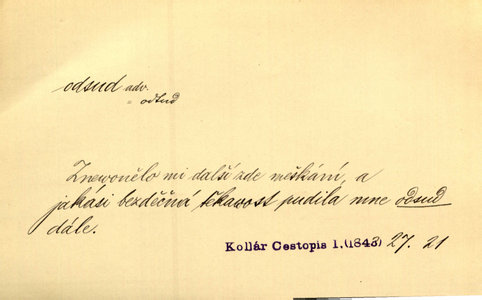 odsud adv.
= odtud
Znewonělo mi další zde meškání, a
jakási bezděčná těkavost pudila mne odsud
dále.
Kollár Cestopis I.(1843) 27. 21